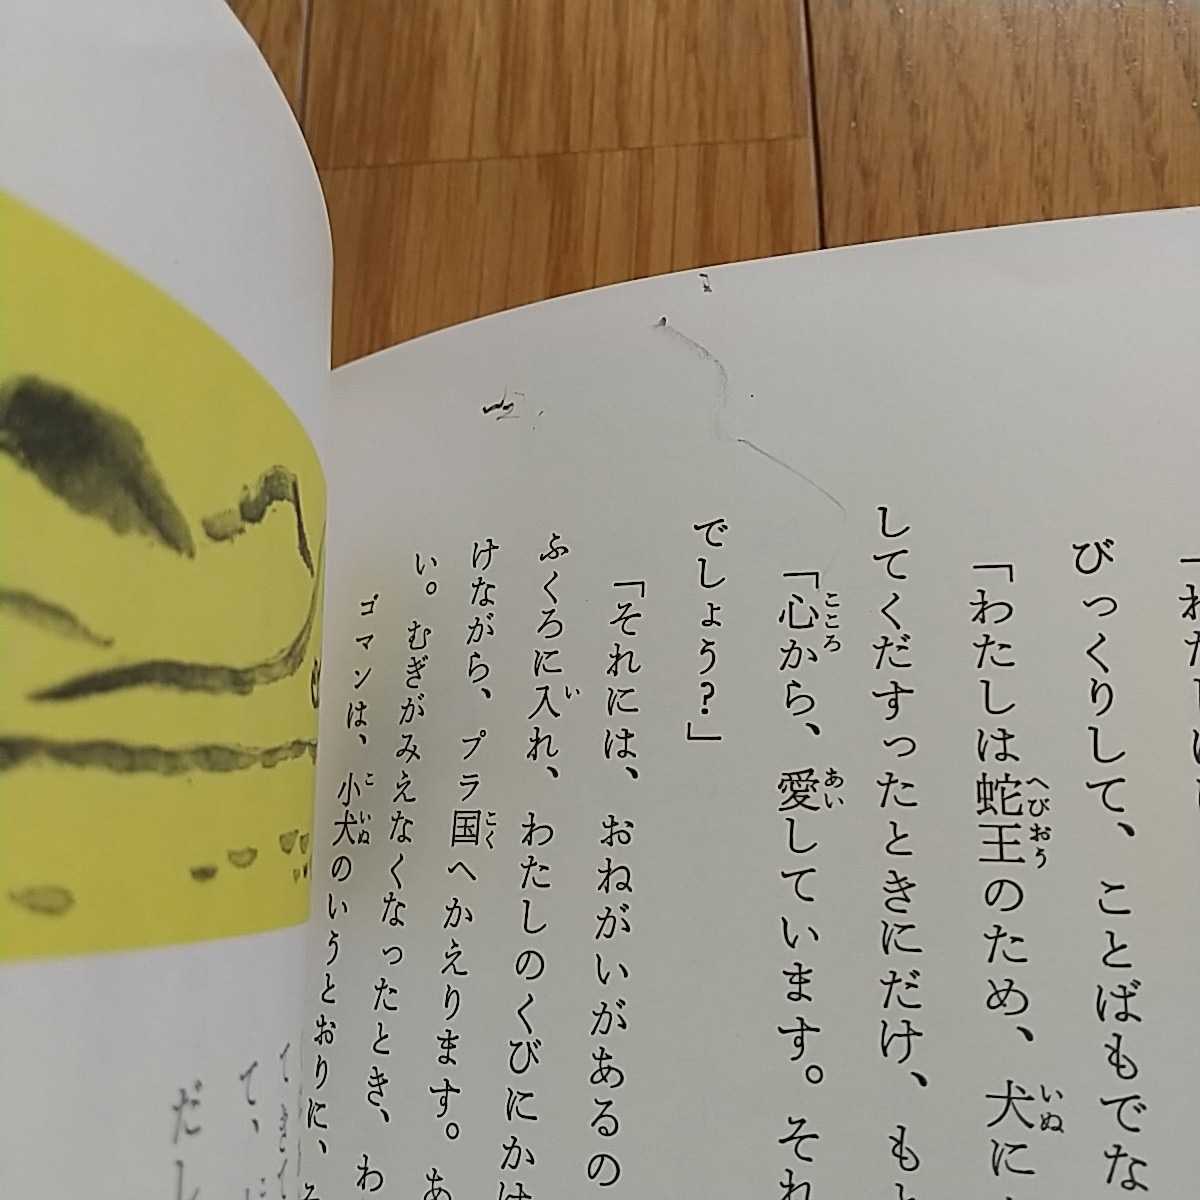 「わたしは
びっくりして、ことばもでな
「わたしは蛇王のため、犬に
してくだすったときにだけ、もと
「心から、愛しています。それ
でしょう？」
「それには、おねがいがあるの
ふくろに入れ、わたしのくびにかけ
けながら、プラ国へかえります。あ
い。むぎがみえなくなったとき、わ
ゴマンは、小犬のいうとおりに、そ
てきて
て、に
だし